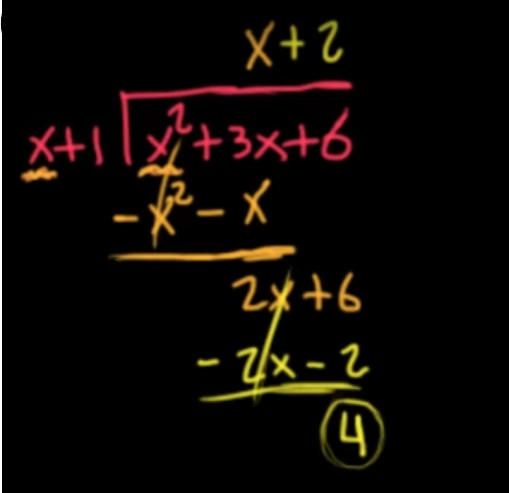 x+2
x+1 x²+3x+6
-x²-x
2x+6
-2x-2
4